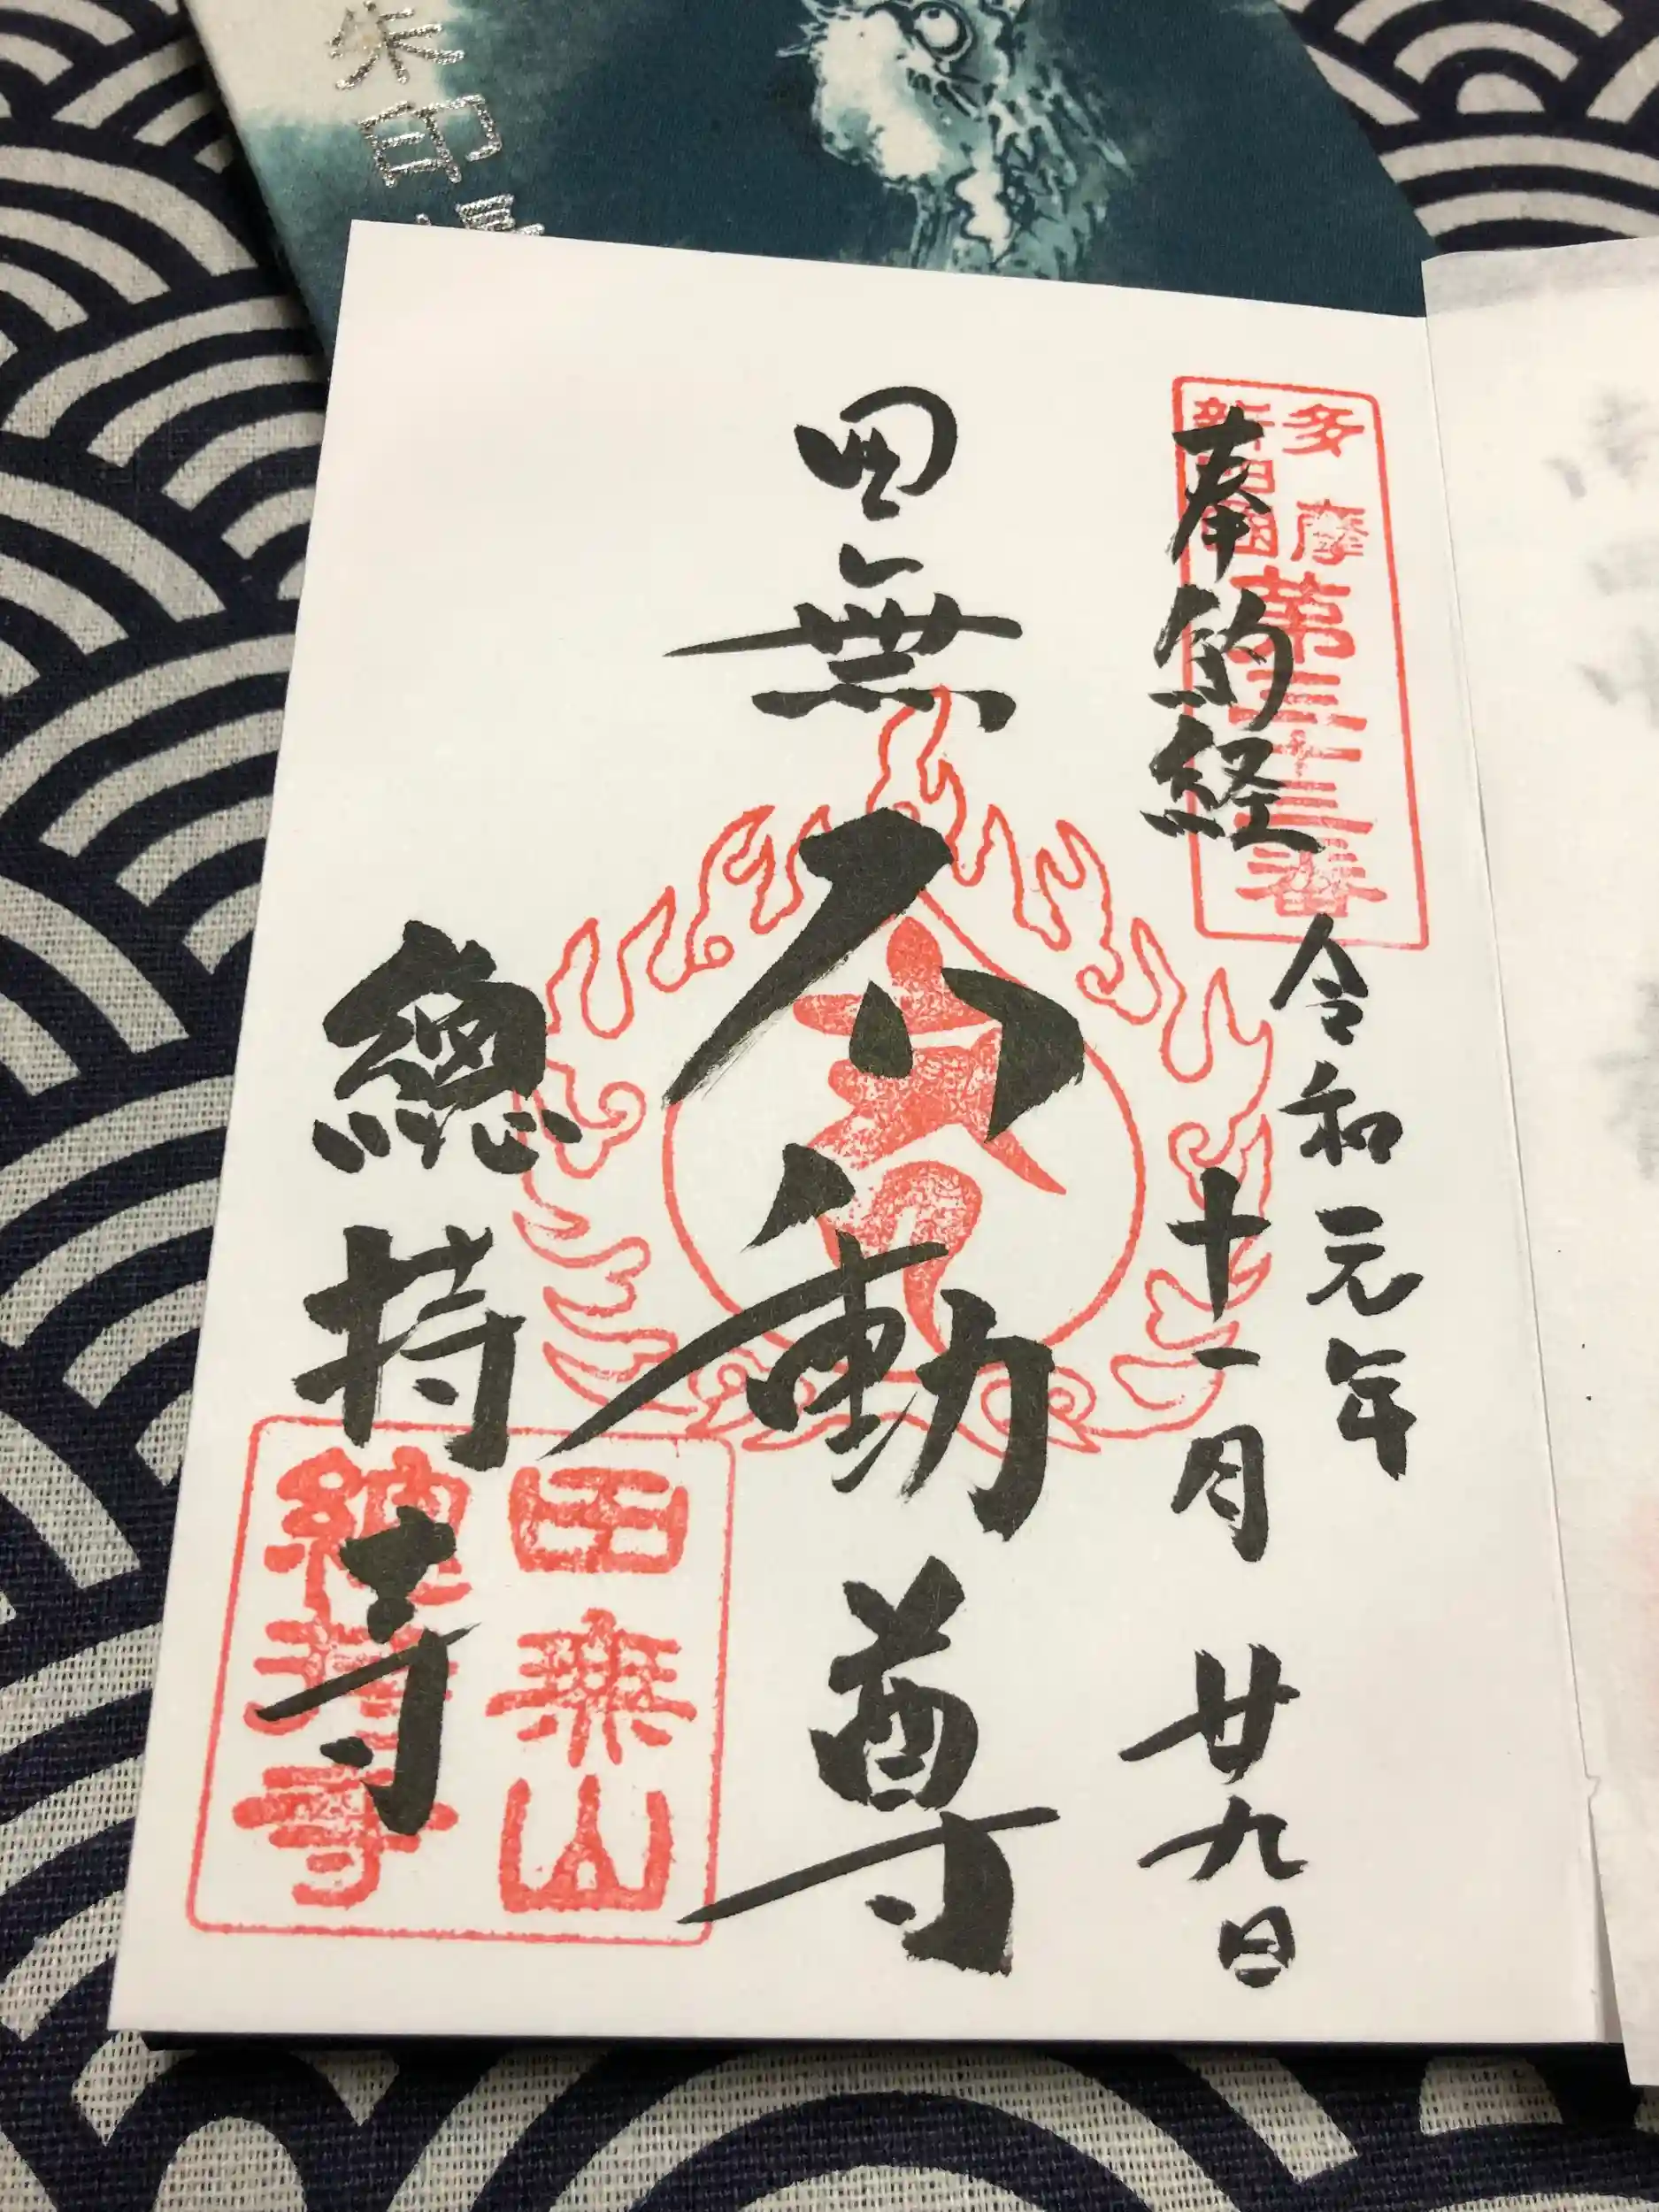 朱印帳
多摩
新四國
第三十三番
奉納経
令和元年
十一月廿九日
田無
不動尊
總持寺
田無山
總持寺